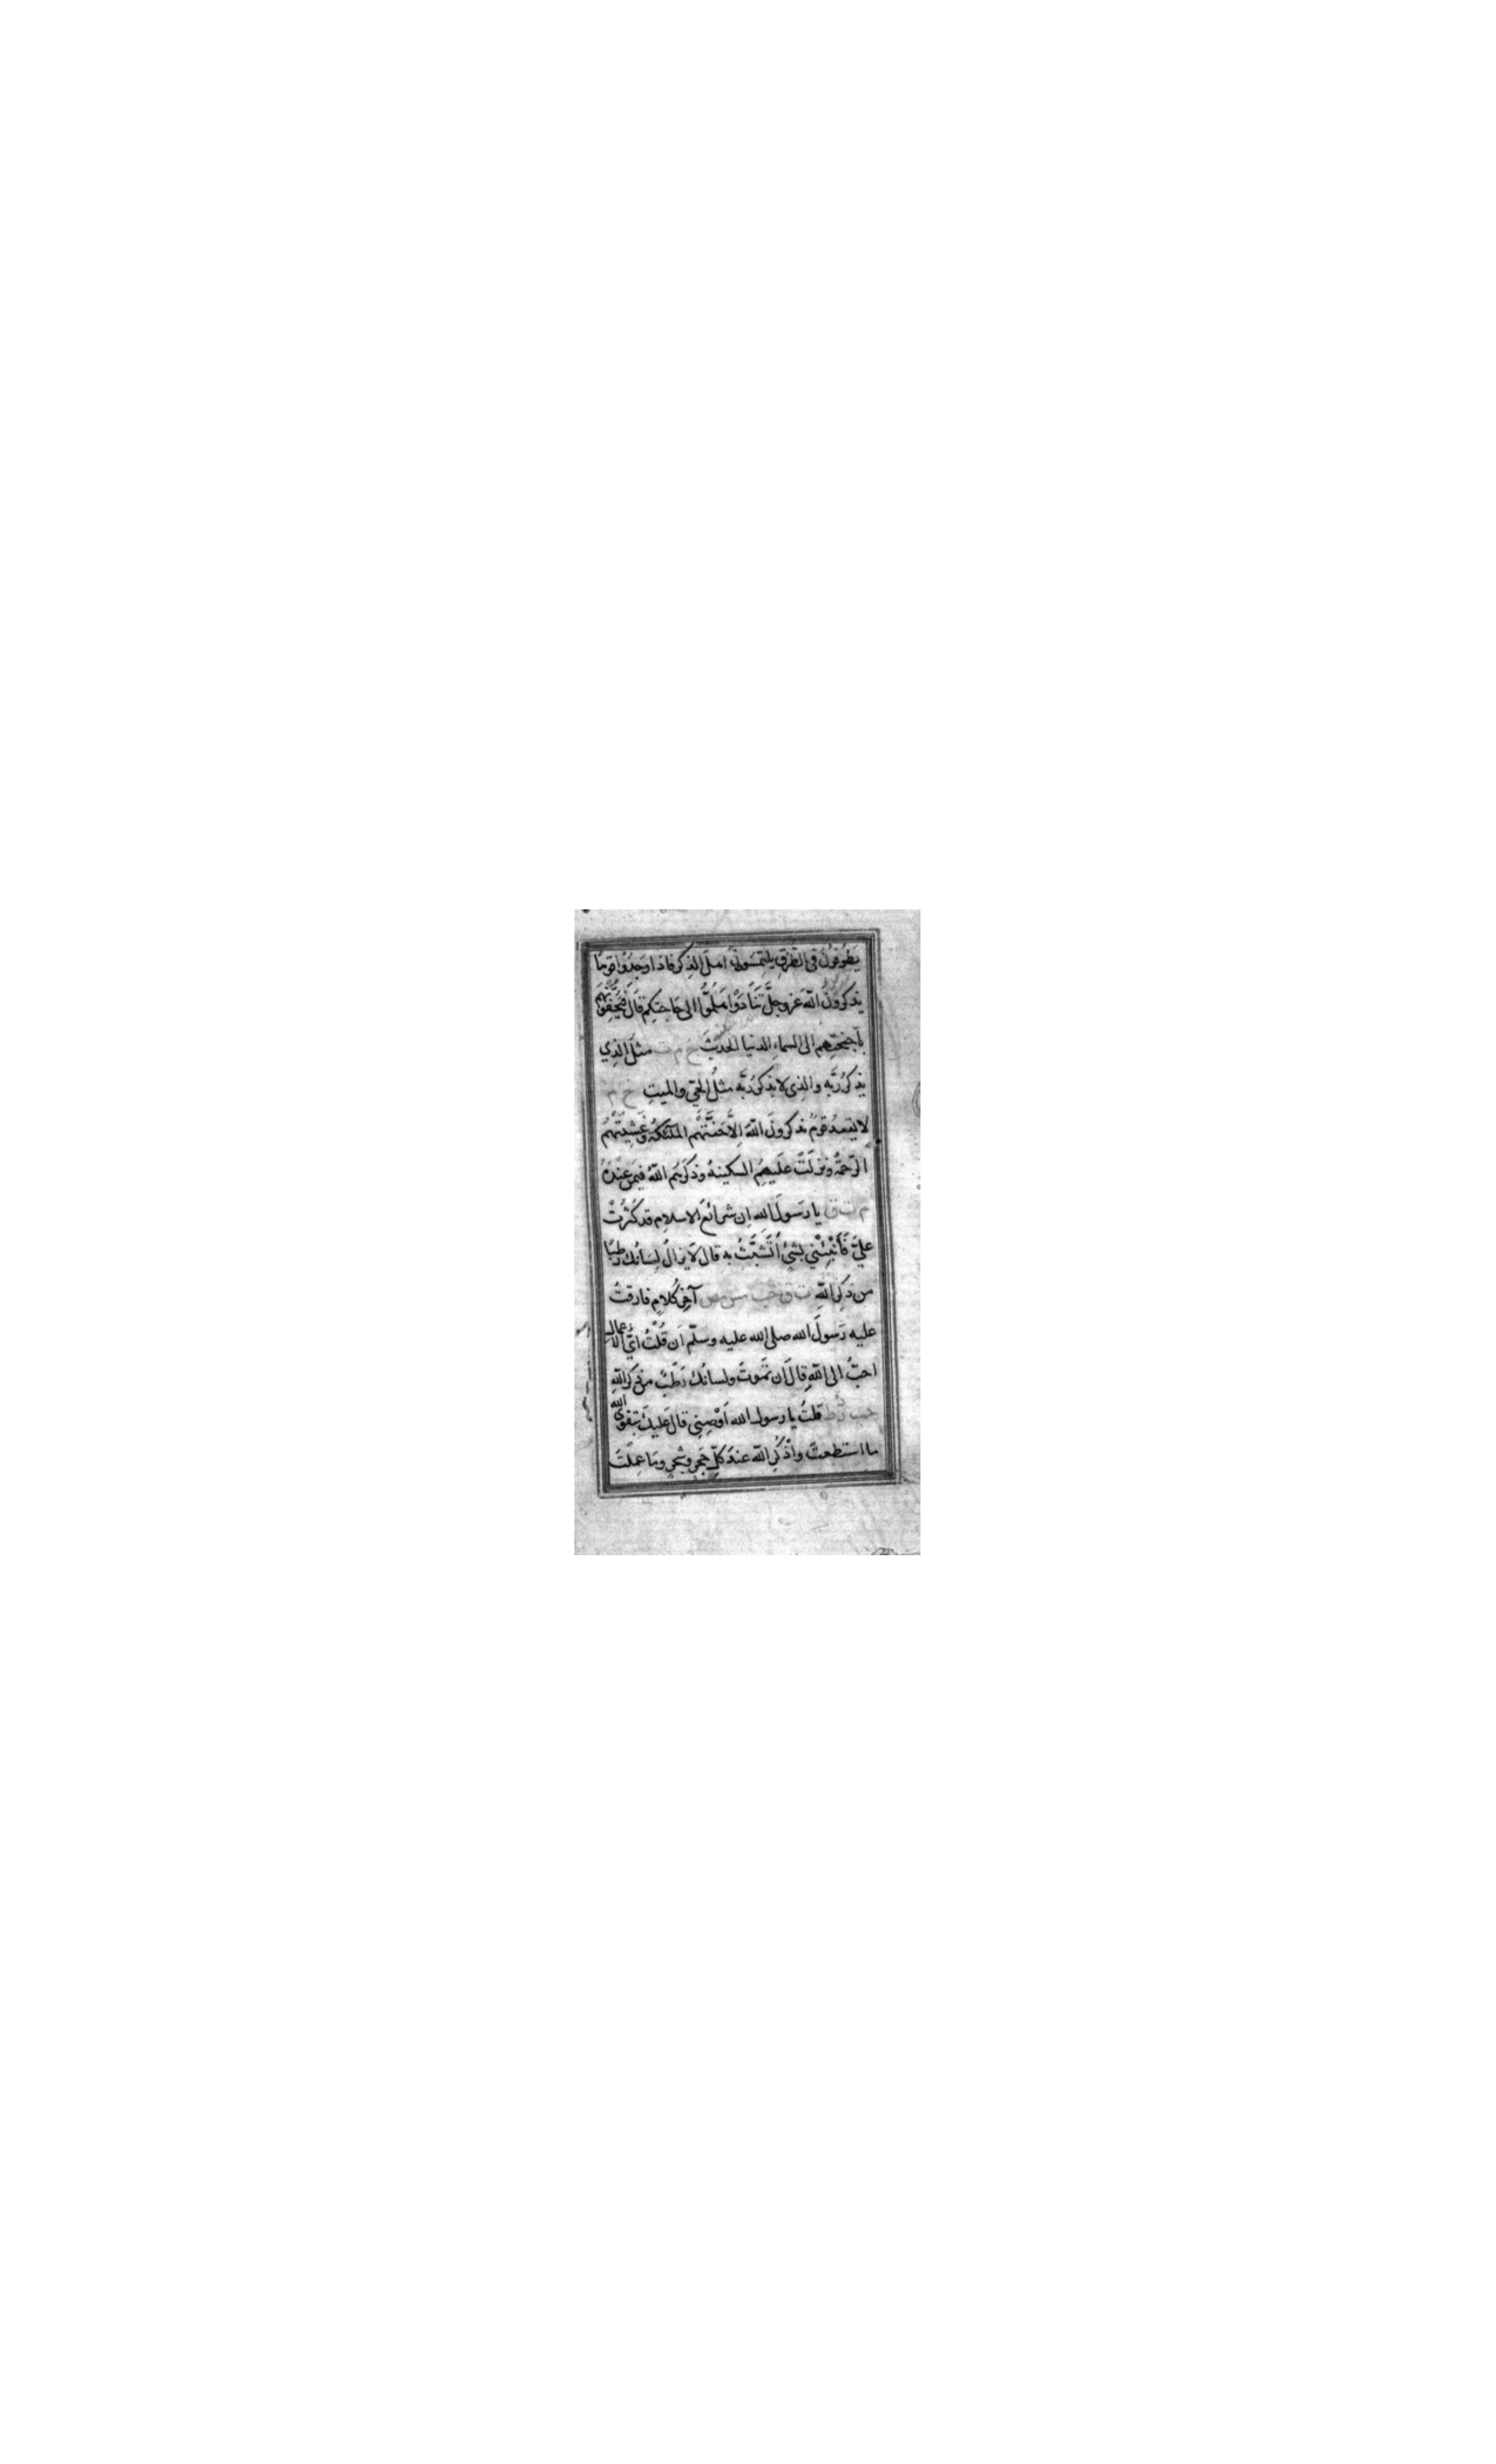 يَطُوفُونَ في الطُّرُقِ يلتمسُونَ اهلَ الذِكر فاذا وجدُوا قومًا
يذكرونَ اللّٰهَ عزوجلَّ تنَادَوْا هلُمُّوا الى حاجتِكم قال فيَحُفّونهم
بأجنحتِهم الى السماءِ الدنيا الحديثَ خ م ت مثلُ الذِي
يذكرُ ربَّه والذِى لا يذكرُ ربَّه مثلُ الحيّ والميتِ خ م
لا يقعدُ قومٌ يذكرونَ اللّٰهَ اِلّا حَفَّتْهُم الملٰئكةُ وغَشِيَتْهُمُ
الرّحمةُ ونزلَتْ علَيهِمُ السكينةُ وذكرَهُم اللّٰهُ فيمَن عِنْدَهُ
م ت ق يا رسَولَ الله اِن شرائعَ الاسلامِ قد كثُرتْ
عليَّ فَأَنْبِئْني بشيءٍ أتَشَبَّثُ به قال لا يزالُ لِسَانُك رَطبًا
من ذكرِ اللّٰهِ ت ق حب مس مص آخرُ كلامٍ فارقتُ
عليه رَسولَ الله صلى الله عليه وسلّم اَن قُلْتُ ايُّ الاَعمالِ
احبُّ الى اللّٰهِ قال اَن تموتَ ولسانُك رَطْبٌ من ذكرِ اللّٰهِ
حب ر ط قلتُ يا رسول الله اَوْصِنِى قال عَليكَ بتقوَى الله
ما استطعتَ واذْكُرِ اللّٰه عندَ كلِّ حجرٍ وشجرٍ ومَا عمِلْتَ